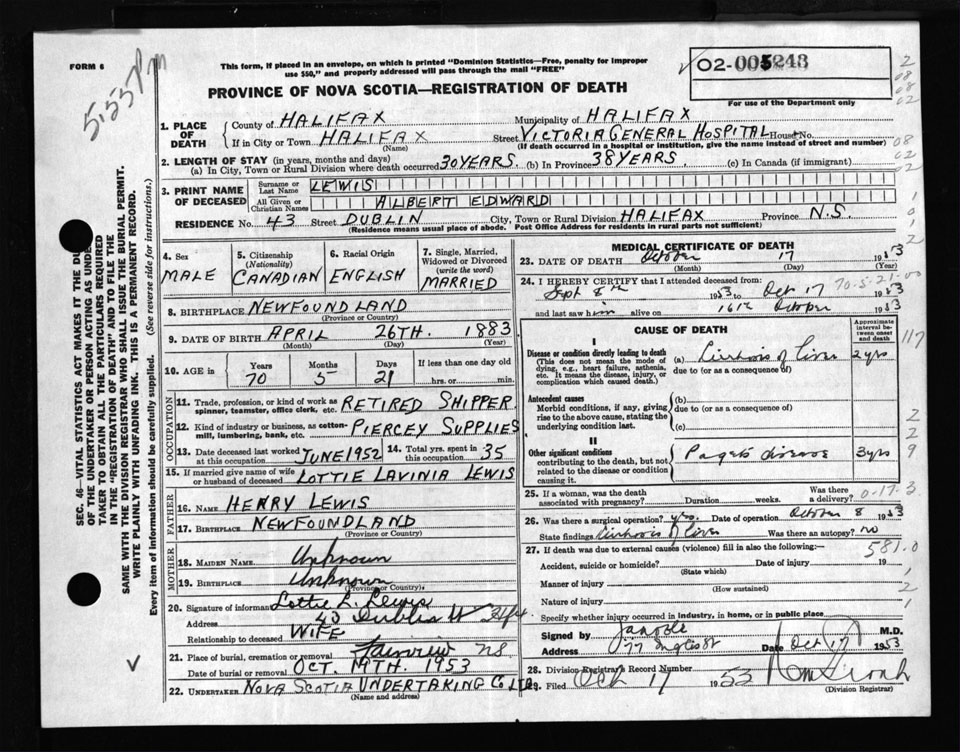 FORM 6
5:55 PM
This form, if placed in an envelope, on which is printed "Dominion Statistics—Free, penalty for improper
use $50," and properly addressed will pass through the mail "FREE"
02-005243
For use of the Department only
PROVINCE OF NOVA SCOTIA—REGISTRATION OF DEATH
1. PLACE OF DEATH
County of HALIFAX Municipality of HALIFAX
If in City or Town HALIFAX Street VICTORIA GENERAL HOSPITAL House No.
(Name) (If death occurred in a hospital or institution, give the name instead of street and number)
2. LENGTH OF STAY (in years, months and days)
(a) In City, Town or Rural Division where death occurred 30 YEARS. (b) In Province 38 YEARS. (c) In Canada (if immigrant)
3. PRINT NAME OF DECEASED
Surname or Last Name LEWIS
All Given or Christian Names ALBERT EDWARD
RESIDENCE No. 43 Street DUBLIN City, Town or Rural Division HALIFAX Province N.S.
(Residence means usual place of abode. Post Office Address for residents in rural parts not sufficient)
4. Sex MALE
5. Citizenship (Nationality) CANADIAN
6. Racial Origin ENGLISH
7. Single, Married, Widowed or Divorced (write the word) MARRIED
8. BIRTHPLACE NEWFOUNDLAND
(Province or Country)
9. DATE OF BIRTH APRIL 26TH. 1883
(Month) (Day) (Year)
10. AGE in Years 70 Months 5 Days 21 If less than one day old hrs. or min.
OCCUPATION
11. Trade, profession, or kind of work as spinner, teamster, office clerk, etc. RETIRED SHIPPER
12. Kind of industry or business, as cotton-mill, lumbering, bank, etc. PIERCEY SUPPLIES
13. Date deceased last worked at this occupation JUNE 1952
14. Total yrs. spent in this occupation 35
15. If married give name of wife or husband of deceased LOTTIE LAVINIA LEWIS
FATHER
16. Name HENRY LEWIS
17. Birthplace NEWFOUNDLAND
(Province or Country)
MOTHER
18. Maiden Name Unknown
19. Birthplace Unknown
(Province or Country)
20. Signature of informant Lottie L. Lewis
Address 43 Dublin St Hfx
Relationship to deceased WIFE
21. Place of burial, cremation or removal Fairview NS
Date of burial or removal OCT. 19TH. 1953
22. Undertaker NOVA SCOTIA UNDERTAKING CO LTD
(Name and address)
MEDICAL CERTIFICATE OF DEATH
23. DATE OF DEATH October 17 1953
(Month) (Day) (Year)
24. I HEREBY CERTIFY that I attended deceased from:
Sept 8th 1953 to Oct 17 1953
70-5-21-00
and last saw him alive on 16th October 1953
CAUSE OF DEATH
Approximate interval between onset and death
I
Disease or condition directly leading to death
(This does not mean the mode of dying, e.g., heart failure, asthenia, etc. It means the disease, injury, or complication which caused death.)
(a) Cirrhosis of Liver 2 yrs
due to (or as a consequence of)
Antecedent causes
Morbid conditions, if any, giving rise to the above cause, stating the underlying condition last.
(b)
due to (or as a consequence of)
(c)
II
Other significant conditions
contributing to the death, but not related to the disease or condition causing it.
Pagets disease 3 yrs
25. If a woman, was the death associated with pregnancy? Duration weeks. Was there a delivery?
0-17-3
26. Was there a surgical operation? yes. Date of operation October 8 1953
State findings Cirrhosis of Liver Was there an autopsy? no
27. If death was due to external causes (violence) fill in also the following:—
581.0
Accident, suicide or homicide? Date of injury 19
(State which)
Manner of injury
(How sustained)
Nature of injury
Specify whether injury occurred in industry, in home, or in public place
Signed by M.D.
77 Inglis St Date Oct 17 1953
28. Division Registrar's Record Number
29. Filed Oct 17 1953
(Division Registrar)
SEC. 46—VITAL STATISTICS ACT MAKES IT THE
OF THE UNDERTAKER OR PERSON ACTING AS
TAKER TO OBTAIN ALL THE PARTICULARS REQUIRED
IN THE "REGISTRATION OF DEATH" AND TO FILE THE
SAME WITH THE DIVISION REGISTRAR WHO SHALL ISSUE THE BURIAL PERMIT.
WRITE PLAINLY WITH UNFADING INK. THIS IS A PERMANENT RECORD.
Every item of information should be carefully supplied. (See reverse side for instructions.)
2
08
08
02
08
02
02
1
0
1
2
117
2
2
9
1
2
1